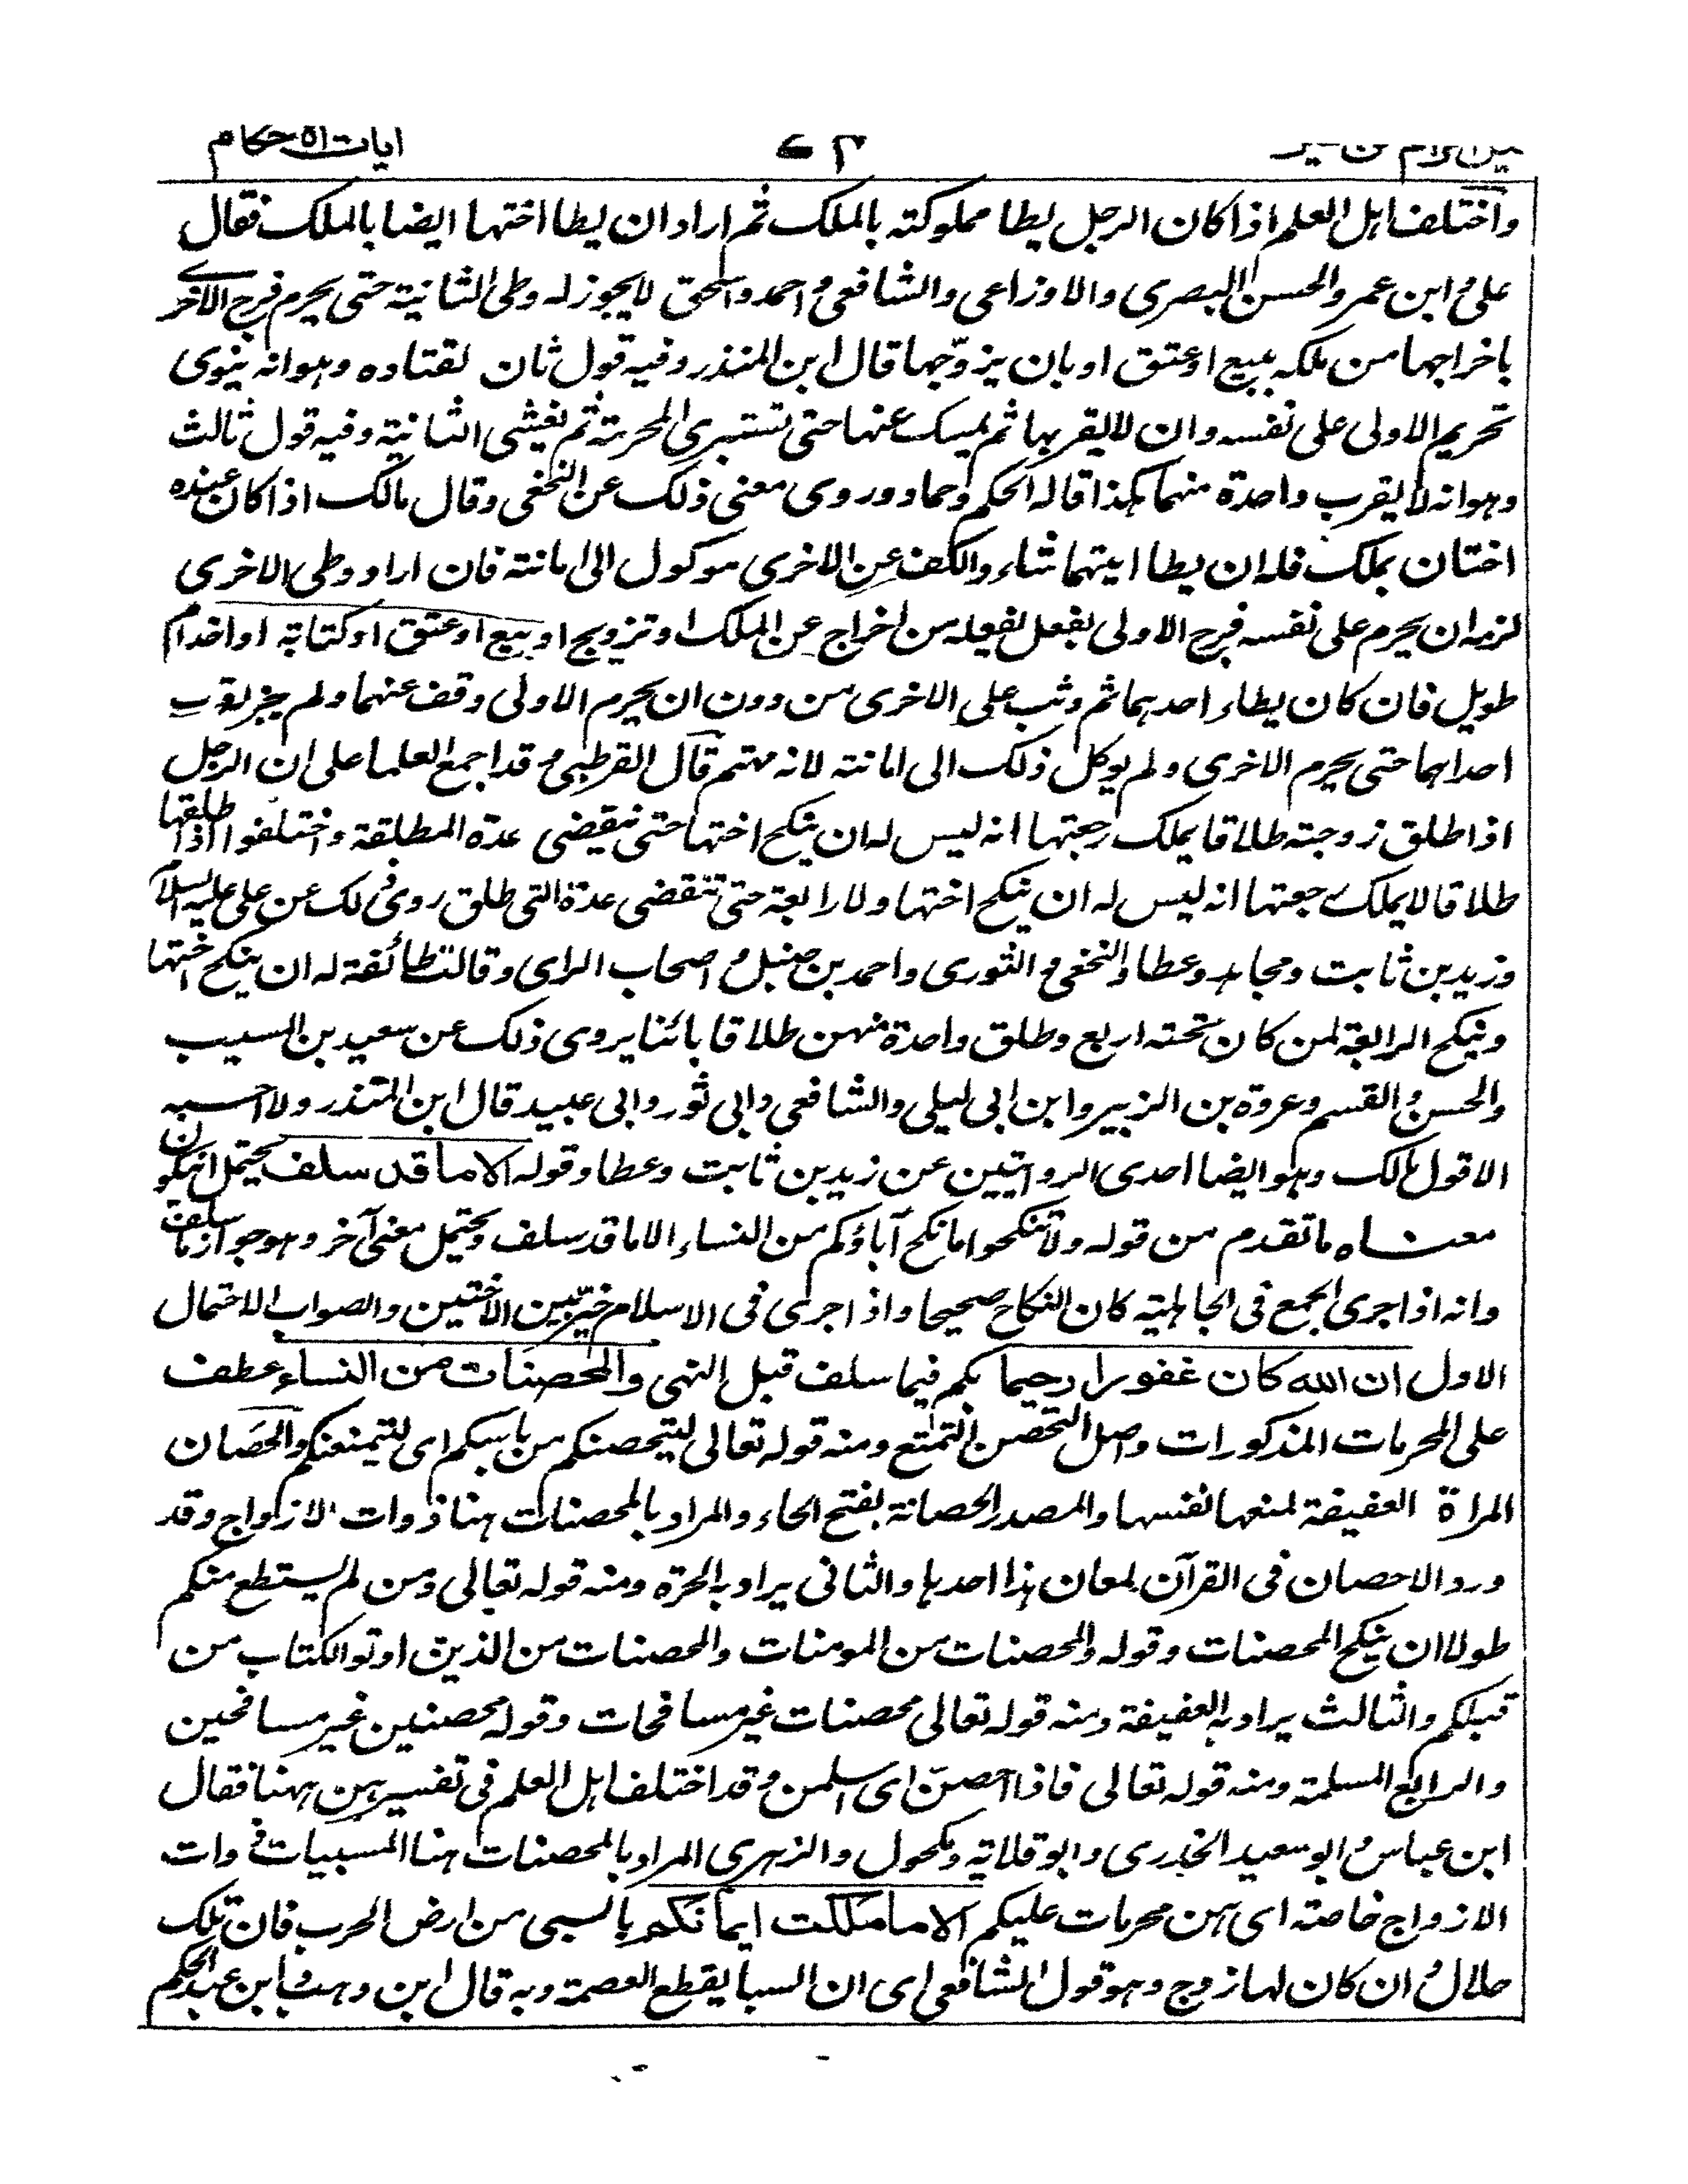 نيل المرام من تفسير ٧٣ ايات الاحكام
واختلف اہل العلم اذا كان الرجل يطا مملوكته بالملك ثم اراد ان يطا اختها ايضا بالملك فقال
علي وابن عمر والحسن البصري والاوزاعي والشافعي واحمد واسحق لا يجوز له وطي الثانية حتى يحرم فرج الاخرى
باخراجها من ملكه ببيع او عتق او بان يزوّجها قال ابن المنذر وفيه قول ثان لقتاده وهو انه ينوى
تحريم الاولى على نفسه وان لا يقربها ثم يمسك عنها حتى تستبري المحرمة ثم يغشى الثانية وفيه قول ثالث
وهو انه لا يقرب واحدة منهما هكذا قاله الحكم وحماد وروى معنى ذلك عن النخعي وقال مالك اذا كان عنده
اختان بملك فله ان يطا ايتهما شاء والكف عن الاخرى موكول الى امانته فان اراد وطى الاخرى
لزمه ان يحرم على نفسه فرج الاولى بفعل يفعله من اخراج عن الملك او تزويج او بيع او عتق او كتابة او اخدام
طويل فان كان يطاء احدهما ثم وثب على الاخرى من دون ان يحرم الاولى وقف عنهما ولم يجز له قرب
احداهما حتى يحرم الاخرى ولم يوكل ذلك الى امانته لانه متهم قال القرطبي وقد اجمع العلما على ان الرجل
اذا طلق زوجته طلاقا يملك رجعتها انه ليس له ان ينكح اختها حتى تنقضى عدة المطلقة واختلفوا اذا طلقها
طلاقا لا يملك رجعتها انه ليس له ان ينكح اختها ولا رابعة حتى تنقضى عدة التى طلق روى ذلك عن على عليه السلام
وزيد بن ثابت ومجاهد وعطا والنخعي والثورى واحمد بن حنبل واصحاب الراى وقالت طائفة له ان ينكح اختها
وينكح الرابعة لمن كان تحته اربع وطلق واحدة منهن طلاقا بائنا يروى ذلك عن سعيد بن المسيب
والحسن والقسم وعروة بن الزبير وابن ابى ليلى والشافعى وابى ثور وابى عبيد قال ابن المنذر ولا احسبه
الا قول مالك وهو ايضا احدى الروايتين عن زيد بن ثابت وعطا وقوله الا ما قد سلف يحتمل ان يكون
معناه ما تقدم من قوله ولا تنكحوا ما نكح آباؤكم من النساء الا ما قد سلف ويحتمل معنى آخر وهو جواز ما سلف
وانه اذا جرى الجمع فى الجاهلية كان النكاح صحيحا واذا جرى فى الاسلام خيّر بين الاختين والصواب الاحتمال
الاول ان الله كان غفورا رحيما بكم فيما سلف قبل النهى والمحصنات من النساء عطف
على المحرمات المذكورات واصل التحصن التمنع ومنه قوله تعالى لتحصنكم من باسكم اى لتمنعكم والحَصان
المراة العفيفة لمنعها نفسها والمصدر الحصانة بفتح الحاء والمراد بالمحصنات هنا ذوات الازواج وقد
ورد الاحصان فى القرآن لمعان هذا احدها والثانى يراد به الحرة ومنه قوله تعالى ومن لم يستطع منكم
طولا ان ينكح المحصنات وقوله والمحصنات من المومنات والمحصنات من الذين اوتوا الكتاب من
قبلكم والثالث يراد به العفيفة ومنه قوله تعالى محصنات غير مسافحات وقوله محصنين غير مسافحين
والرابع المسلمة ومنه قوله تعالى فاذا احصنّ اى اسلمن وقد اختلف اہل العلم فى تفسير هن ههنا فقال
ابن عباس وابو سعيد الخدرى وابو قلابة ومكحول والزهرى المراد بالمحصنات هنا المسبيات ذوات
الازواج خاصة اى هن محرمات عليكم الا ما ملكت ايمانكم بالسبى من ارض الحرب فان تلك
حلال وان كان لها زوج وهو قول الشافعى اى ان السبا يقطع العصمة وبه قال ابن وهب وابن عبد الحكم